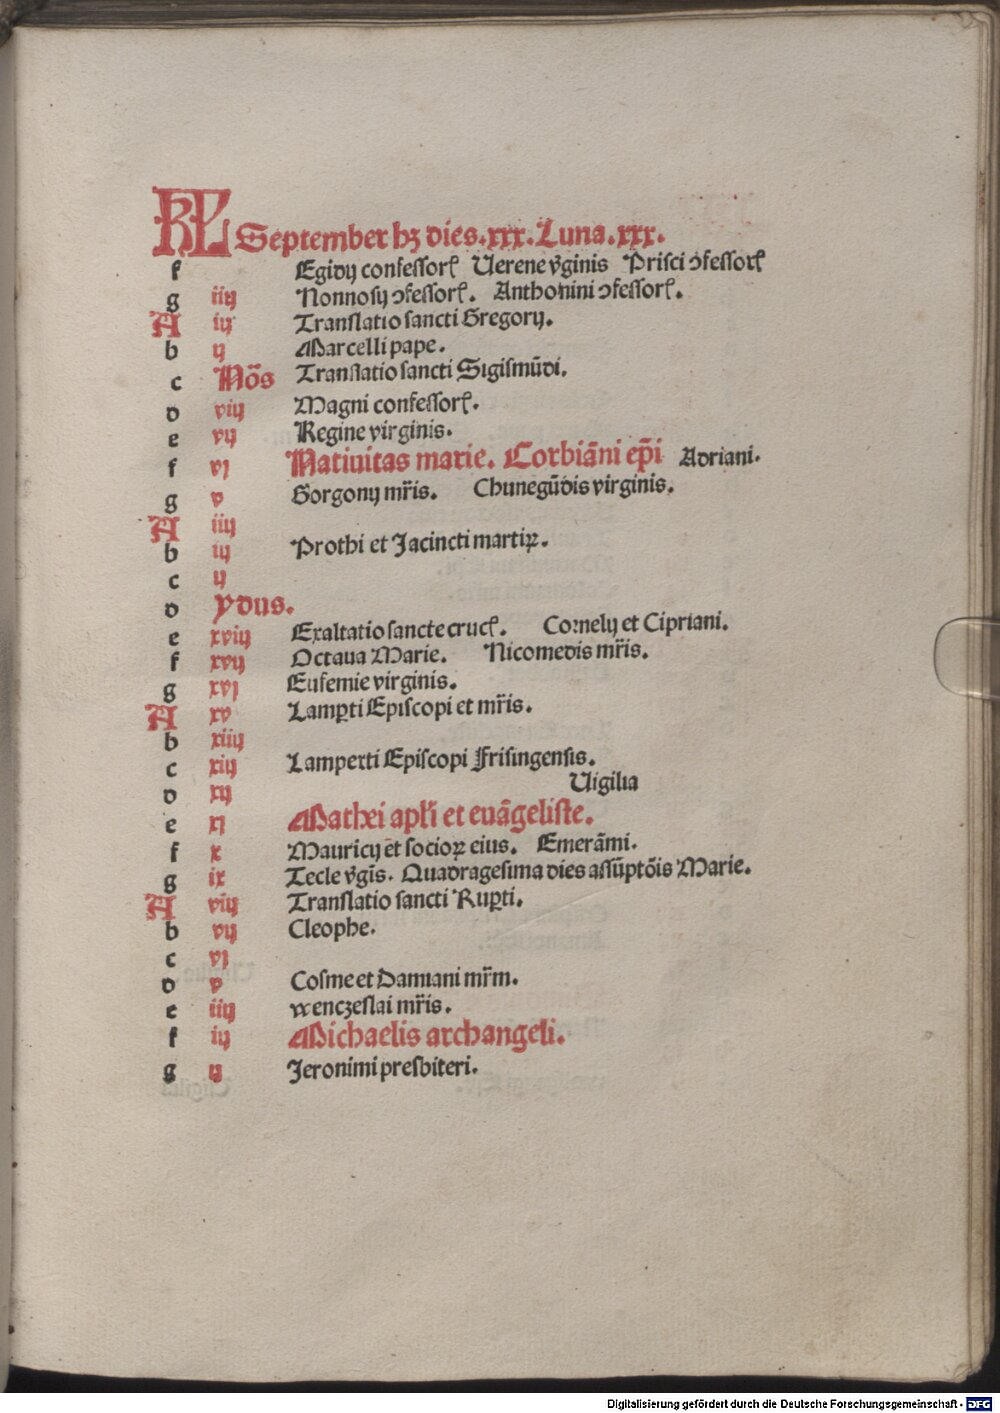 KL September hꝫ dies.xxx.Luna.xxx.
f Egidij confessorꝭ Uerene v̄ginis Prisci ↄfessorꝭ
g iiij Nonnosij ↄfessorꝭ. Anthonini ↄfessorꝭ.
A iij Translatio sancti Gregorij.
b ij Marcelli pape.
c Nōs Translatio sancti Sigismūdi.
d viij Magni confessorꝭ.
e vij Regine virginis.
f vj Natiuitas marie. Corbiāni ep̄i Adriani.
g v Gorgonij mr̄is. Chunegūdis virginis.
A iiij
b iij Prothi et Jacincti martiꝝ.
c ij
d ydus.
e xviij Exaltatio sancte crucꝭ. Cornelij et Cipriani.
f xvij Octaua Marie. Nicomedis mr̄is.
g xvj Eufemie virginis.
A xv Lamꝑti Episcopi et mr̄is.
b xiiij
c xiij Lamperti Episcopi Frisingensis.
d xij Uigilia
e xj Mathei apl̄i et euāgeliste.
f x Mauricij et socioꝝ eius. Emerāmi.
g ix Tecle v̄gīs. Quadragesima dies assūptōis Marie.
A viij Translatio sancti Ruꝑti.
b vij Cleophe.
c vj
d v Cosme et Damiani mr̄m.
e iiij wenczeslai mr̄is.
f iij Michaelis archangeli.
g ij Jeronimi presbiteri.
Digitalisierung gefördert durch die Deutsche Forschungsgemeinschaft - DFG